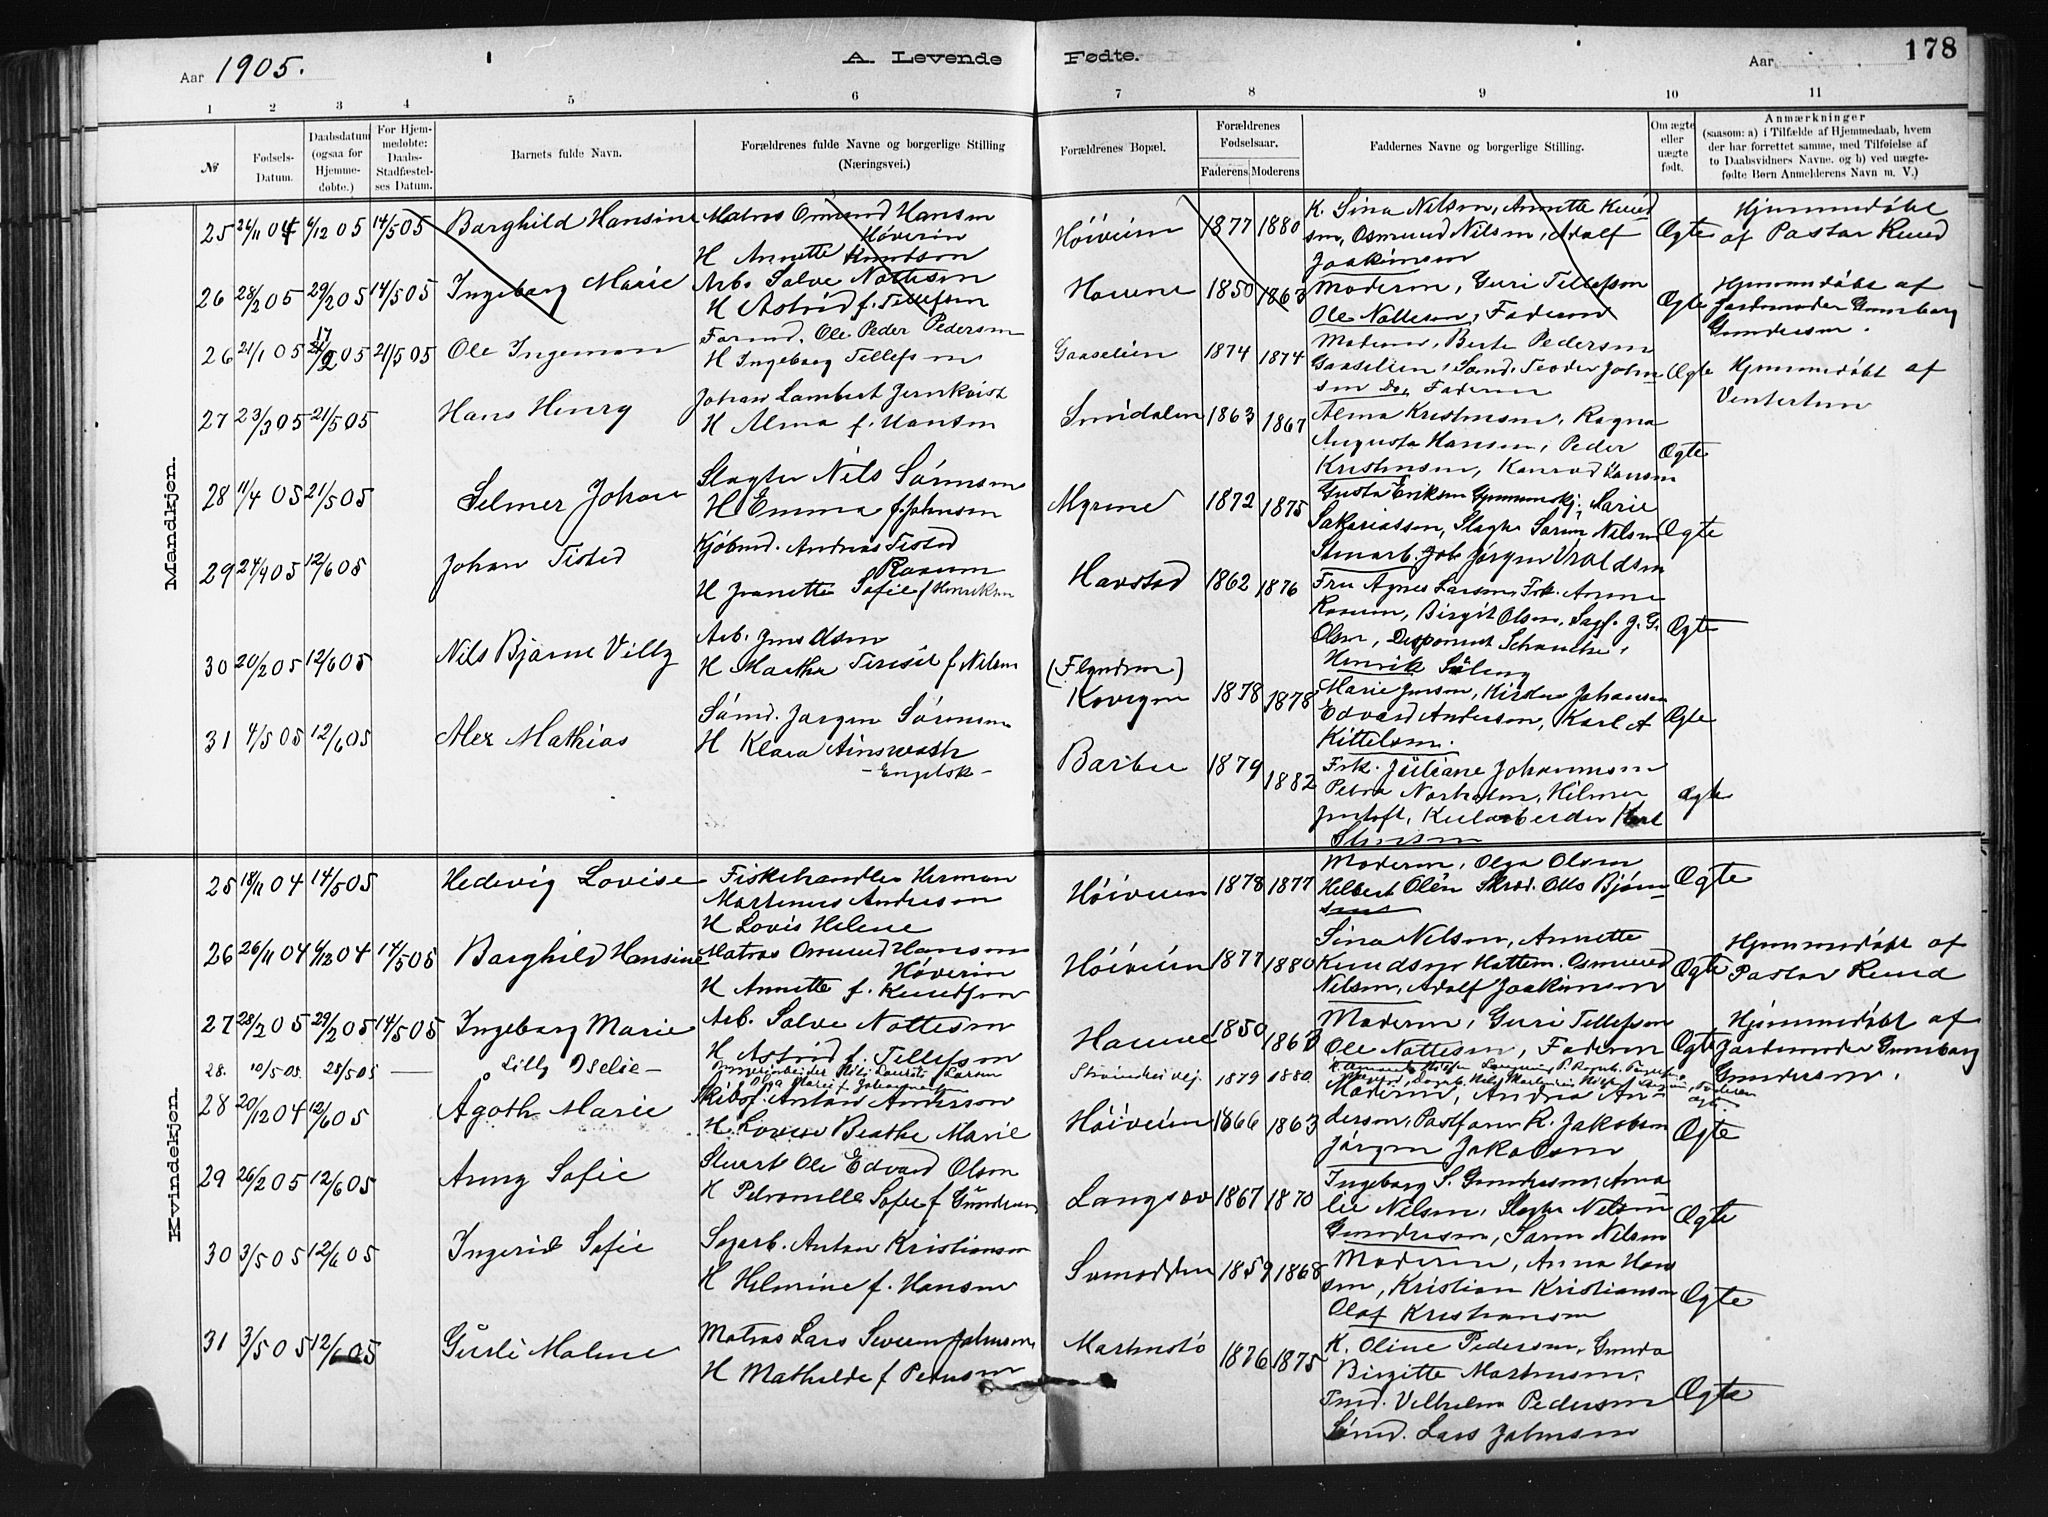 Aar 1905.
A. Levende Fødte.
Aar
178
1 2 3 4 5 6 7 8 9 10 11
№
Fødsels-Datum.
Daabsdatum (ogsaa for Hjemmedøbte.)
For Hjemmedøbte: Daabs-Stadfæstelses Datum.
Barnets fulde Navn.
Forældrenes fulde Navne og borgerlige Stilling (Næringsvei.)
Forældrenes Bopæl.
Forældrenes Fødselsaar.
Faderens Moderens
Faddernes Navne og borgerlige Stilling.
Om ægte eller uægte født.
Anmærkninger (saasom: a) i Tilfælde af Hjemmedaab, hvem der har forrettet samme, med Tilføielse af to Daabsvidners Navne. og b) ved uægtefødte Børn Anmelderens Navn m. V.)
Mandkjøn.
25 26/11 04 6/12 05 14/5 05 Borghild Hansine Matros Osmund Hansen Høiveien 1877 1880 K. Sina Nilsen, Annette Knud Ægte Hjemmedøbt
Høverin
H Annette Knudson
sen, Osmund Nilsen, Adolf
Joakimsen
af Pastor Ruud
26 28/2 05 29/2 05 14/5 05 Ingeborg Marie Arb. Salve Nottesen 1850 1863 Moderen, Guri Tellefsen Ægte Hjemmedøbt af
H Astrid f. Tellefsen
Ole Nottesen, Faderen
Jordmoder Gunnborg
Gundersen.
26 21/1 05 17/2 05 21/5 05 Ole Ingeman Formd. Ole Peder Pedersen Gaaselien 1874 1874 Moderen, Berte Pedersen Ægte Hjemmedøbt af
H Ingeborg Tellefsen
Gaaselien, Sømd. Teodor John
sen Do, Faderen
27 23/3 05 21/5 05 Hans Henry Johan Lambert Jernkvist 1863 1867 Alma Kristensen, Ragna Ægte
H Alma f. Hansen
Augusta Hansen, Peder
Kristensen, Konrad Hansen
28 11/4 05 21/5 05 Selmer Johan Slagter Nils Sørensen Myrene 1872 1875 Gusta Eriksen Marie Ægte
H Emma f. Johnsen
Sakariassen, Slagter Søren Nilsen
Stenarb. Jørgen Vraldsen
29 27/4 05 12/6 05 Johan Tisted Kjøbmd. Andreas Tisted Havstad 1862 1876 Fru Agnes Larsen, Frk. Anna Ægte
Raaum
H Jeanette Sofie f Henriksen
Raaum, Birgit Olsen, Sagf. J. G.
Olsen, Disponent Schanche,
Henrik Søleng
30 20/2 05 12/6 05 Nils Bjarne Villy Arb. Jens Olsen (Flyndren) 1878 1878 Marie Jensen, Kirsten Johansen Ægte
H Marthe Teresie f Nilsen
Edvard Andersen, Karl A
Kittelsen.
31 4/5 05 12/6 05 Alex Mathias Sømd. Jørgen Sørensen Barbu 1879 1882 Frk. Juliane Johannesen Ægte
H Klara Ainswash
- Engelsk -
Petra Norholm, Hilmer
Jentoft, Kularbeider Karl
Stensen
Kvindekjøn.
25 18/11 04 14/5 05 Hedevig Lovise Fiskehandler Herman Høiveien 1878 1877 Moderen, Olga Olsen Ægte
Martinius Anderson
H Lovis Helene
Helbert Olén Skræd. Otto Bjørn
sen
26 26/11 04 6/12 04 14/5 05 Borghild Hansine Matros Osmund Hansen Høiveien 1877 1880 Sina Nilsen, Annette Ægte Hjemmedøbt af
Høverin
H Annette f. Knudson
Knudsen Hattem. Osmund
Nilsen, Adolf Joakimsen
Pastor Ruud
27 28/2 05 29/2 05 14/5 05 Ingeborg Marie Arb. Salve Nottesen 1850 1863 Moderen, Guri Tellefsen Ægte Hjemmedøbt af
H Astrid f. Tellefsen
Ole Nottesen, Faderen
Jordemoder Gunnborg
Gundersen.
28. 10/5 05 28/5 05 — Lilly Oselie Nils Laurits Larsen 1879 1880
Olga Marie f Johannesen
28 20/12 04 12/6 05 Ågoth Marie Skibsf. Anton Anderson Høiveien 1866 1863 Moderen, Andrea An- Ægte
H Lovise Beathe Marie
derson, Postfører R. Jakobsen
Jørgen Jakobsen
29 26/2 05 12/6 05 Anny Sofie Stuert Ole Edvard Olsen Langsæv 1867 1870 Ingeborg S. Gundersen, Ama- Ægte
H Petronille Sofie f Gundersen
lie Nilsen, Slagter Nilsen
Gundersen, Søren Nilsen
30 3/5 05 12/6 05 Ingerid Sofie Sagarb. Anton Kristiansen Svinodden 1859 1868 Moderen, Anna Han Ægte
H Helmine f. Hansen
sen, Kristian Kristiansen
Olaf Kristiansen
31 3/5 05 12/6 05 Gusli Malene Matros Lars Severin Johnsen 1876 1875 K. Oline Pedersen, Gunda Ægte
H Mathilde f Pedersen
Birgitte Martinsen,
Tmd. Vilhelm Pedersen
Sømd. Lars Johnsen